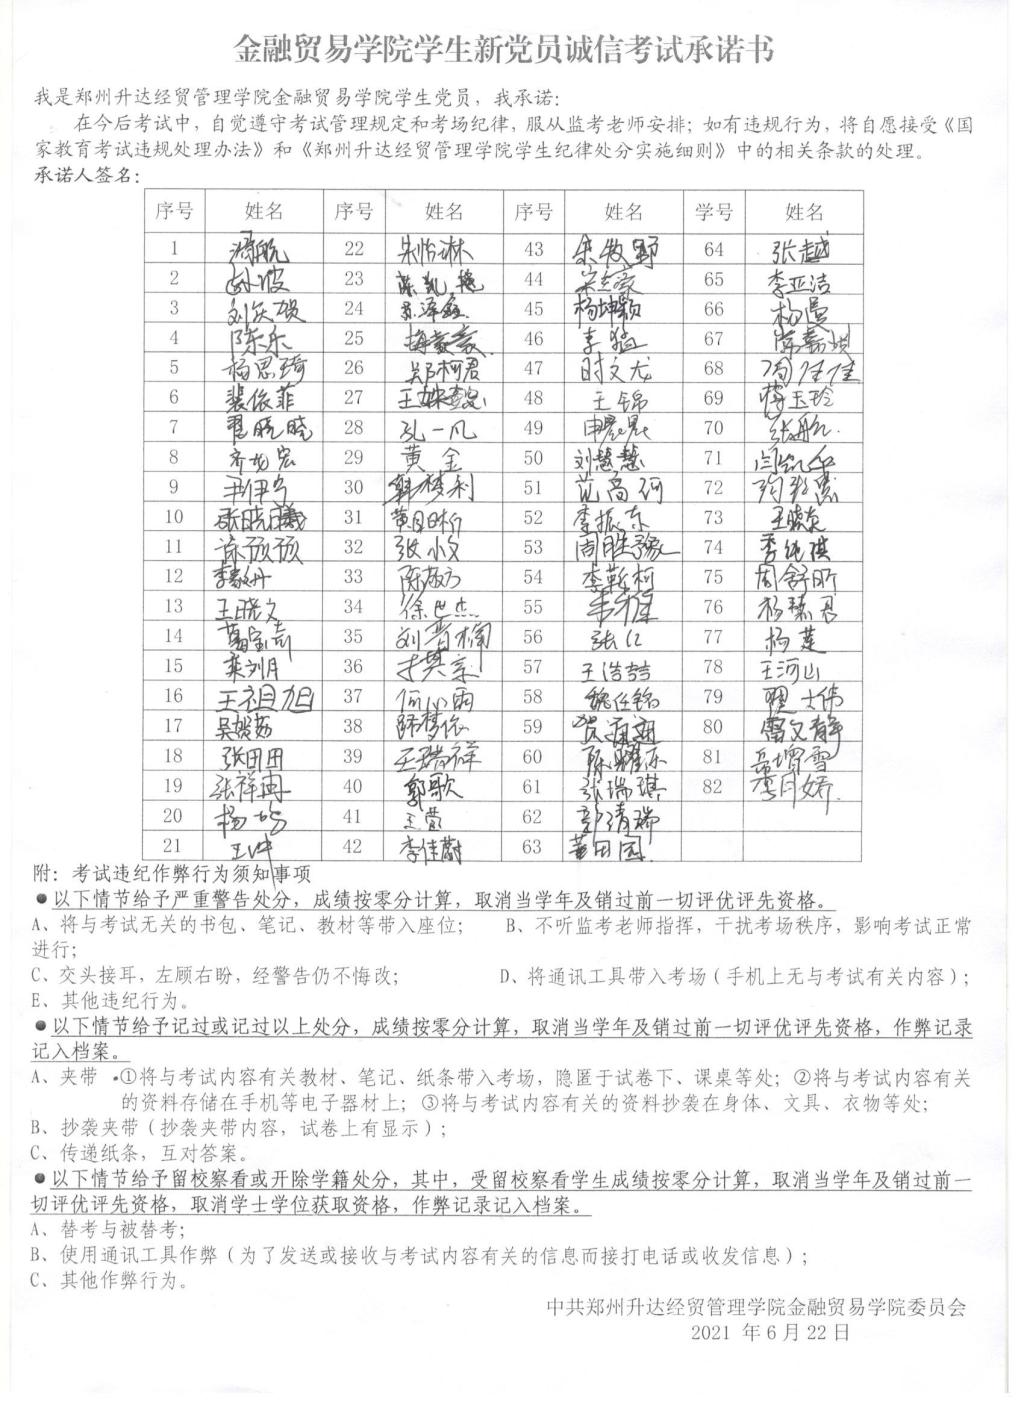 金融贸易学院学生新党员诚信考试承诺书
我是郑州升达经贸管理学院金融贸易学院学生党员，我承诺：
在今后考试中，自觉遵守考试管理规定和考场纪律，服从监考老师安排；如有违规行为，将自愿接受《国
家教育考试违规处理办法》和《郑州升达经贸管理学院学生纪律处分实施细则》中的相关条款的处理。
承诺人签名：
序号 姓名 序号 姓名 序号 姓名 学号 姓名
1 22 朱怡淋 43 宋牧野 64 张越
2 孙波 23 44 65 李亚洁
3 24 45 杨坤颖 66 杨曼
4 陈乐 25 46 67
5 杨思琦 26 郑柯君 47 时文龙 68
6 裴依菲 27 48 王锦 69 玉玲
7 翟晓晓 28 孔一凡 49 申晨晨 70
8 齐龙宏 29 黄金 50 刘慧慧 71
9 尹伊宁 30 韩梦利 51 范高珂 72
10 张晓曦 31 52 李振东 73
11 32 张小文 53 周胜豫 74
12 33 54 李靳柯 75 周舒昕
13 王晓文 34 徐世杰 55 韦雅 76 杨慧君
14 35 刘晋楠 56 77 杨莲
15 36 57 王浩喆 78 王河山
16 王祖旭 37 何心雨 58 魏任铭 79 翟士伟
17 38 59 80 雷文静
18 张田田 39 王瑞祥 60 81
19 张祥雨 40 郭歌 61 张瑞琪 82 李月娇
20 41 王莹 62 彭清瑞
21 王坤 42 李佳蔚 63 董田园
附：考试违纪作弊行为须知事项
●以下情节给予严重警告处分，成绩按零分计算，取消当学年及销过前一切评优评先资格。
A、将与考试无关的书包、笔记、教材等带入座位； B、不听监考老师指挥，干扰考场秩序，影响考试正常
进行；
C、交头接耳，左顾右盼，经警告仍不悔改； D、将通讯工具带入考场（手机上无与考试有关内容）；
E、其他违纪行为。
●以下情节给予记过或记过以上处分，成绩按零分计算，取消当学年及销过前一切评优评先资格，作弊记录
记入档案。
A、夹带 ①将与考试内容有关教材、笔记、纸条带入考场，隐匿于试卷下、课桌等处；②将与考试内容有关
的资料存储在手机等电子器材上；③将与考试内容有关的资料抄袭在身体、文具、衣物等处；
B、抄袭夹带（抄袭夹带内容，试卷上有显示）；
C、传递纸条，互对答案。
●以下情节给予留校察看或开除学籍处分，其中，受留校察看学生成绩按零分计算，取消当学年及销过前一
切评优评先资格，取消学士学位获取资格，作弊记录记入档案。
A、替考与被替考；
B、使用通讯工具作弊（为了发送或接收与考试内容有关的信息而接打电话或收发信息）；
C、其他作弊行为。
中共郑州升达经贸管理学院金融贸易学院委员会
2021 年 6 月 22 日